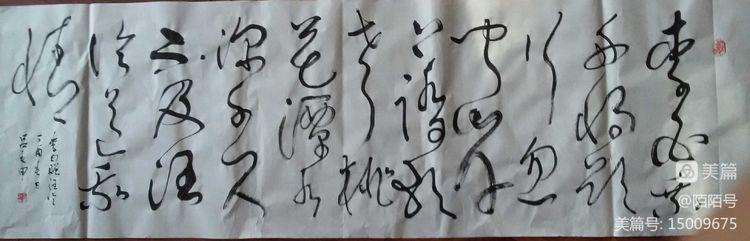 李白乘
舟将欲
行忽
闻岸
上踏歌
声桃
花潭水
深千尺
不及汪
伦送我
情
李白赠汪伦
丁酉
美篇
@陌陌号
美篇号: 15009675